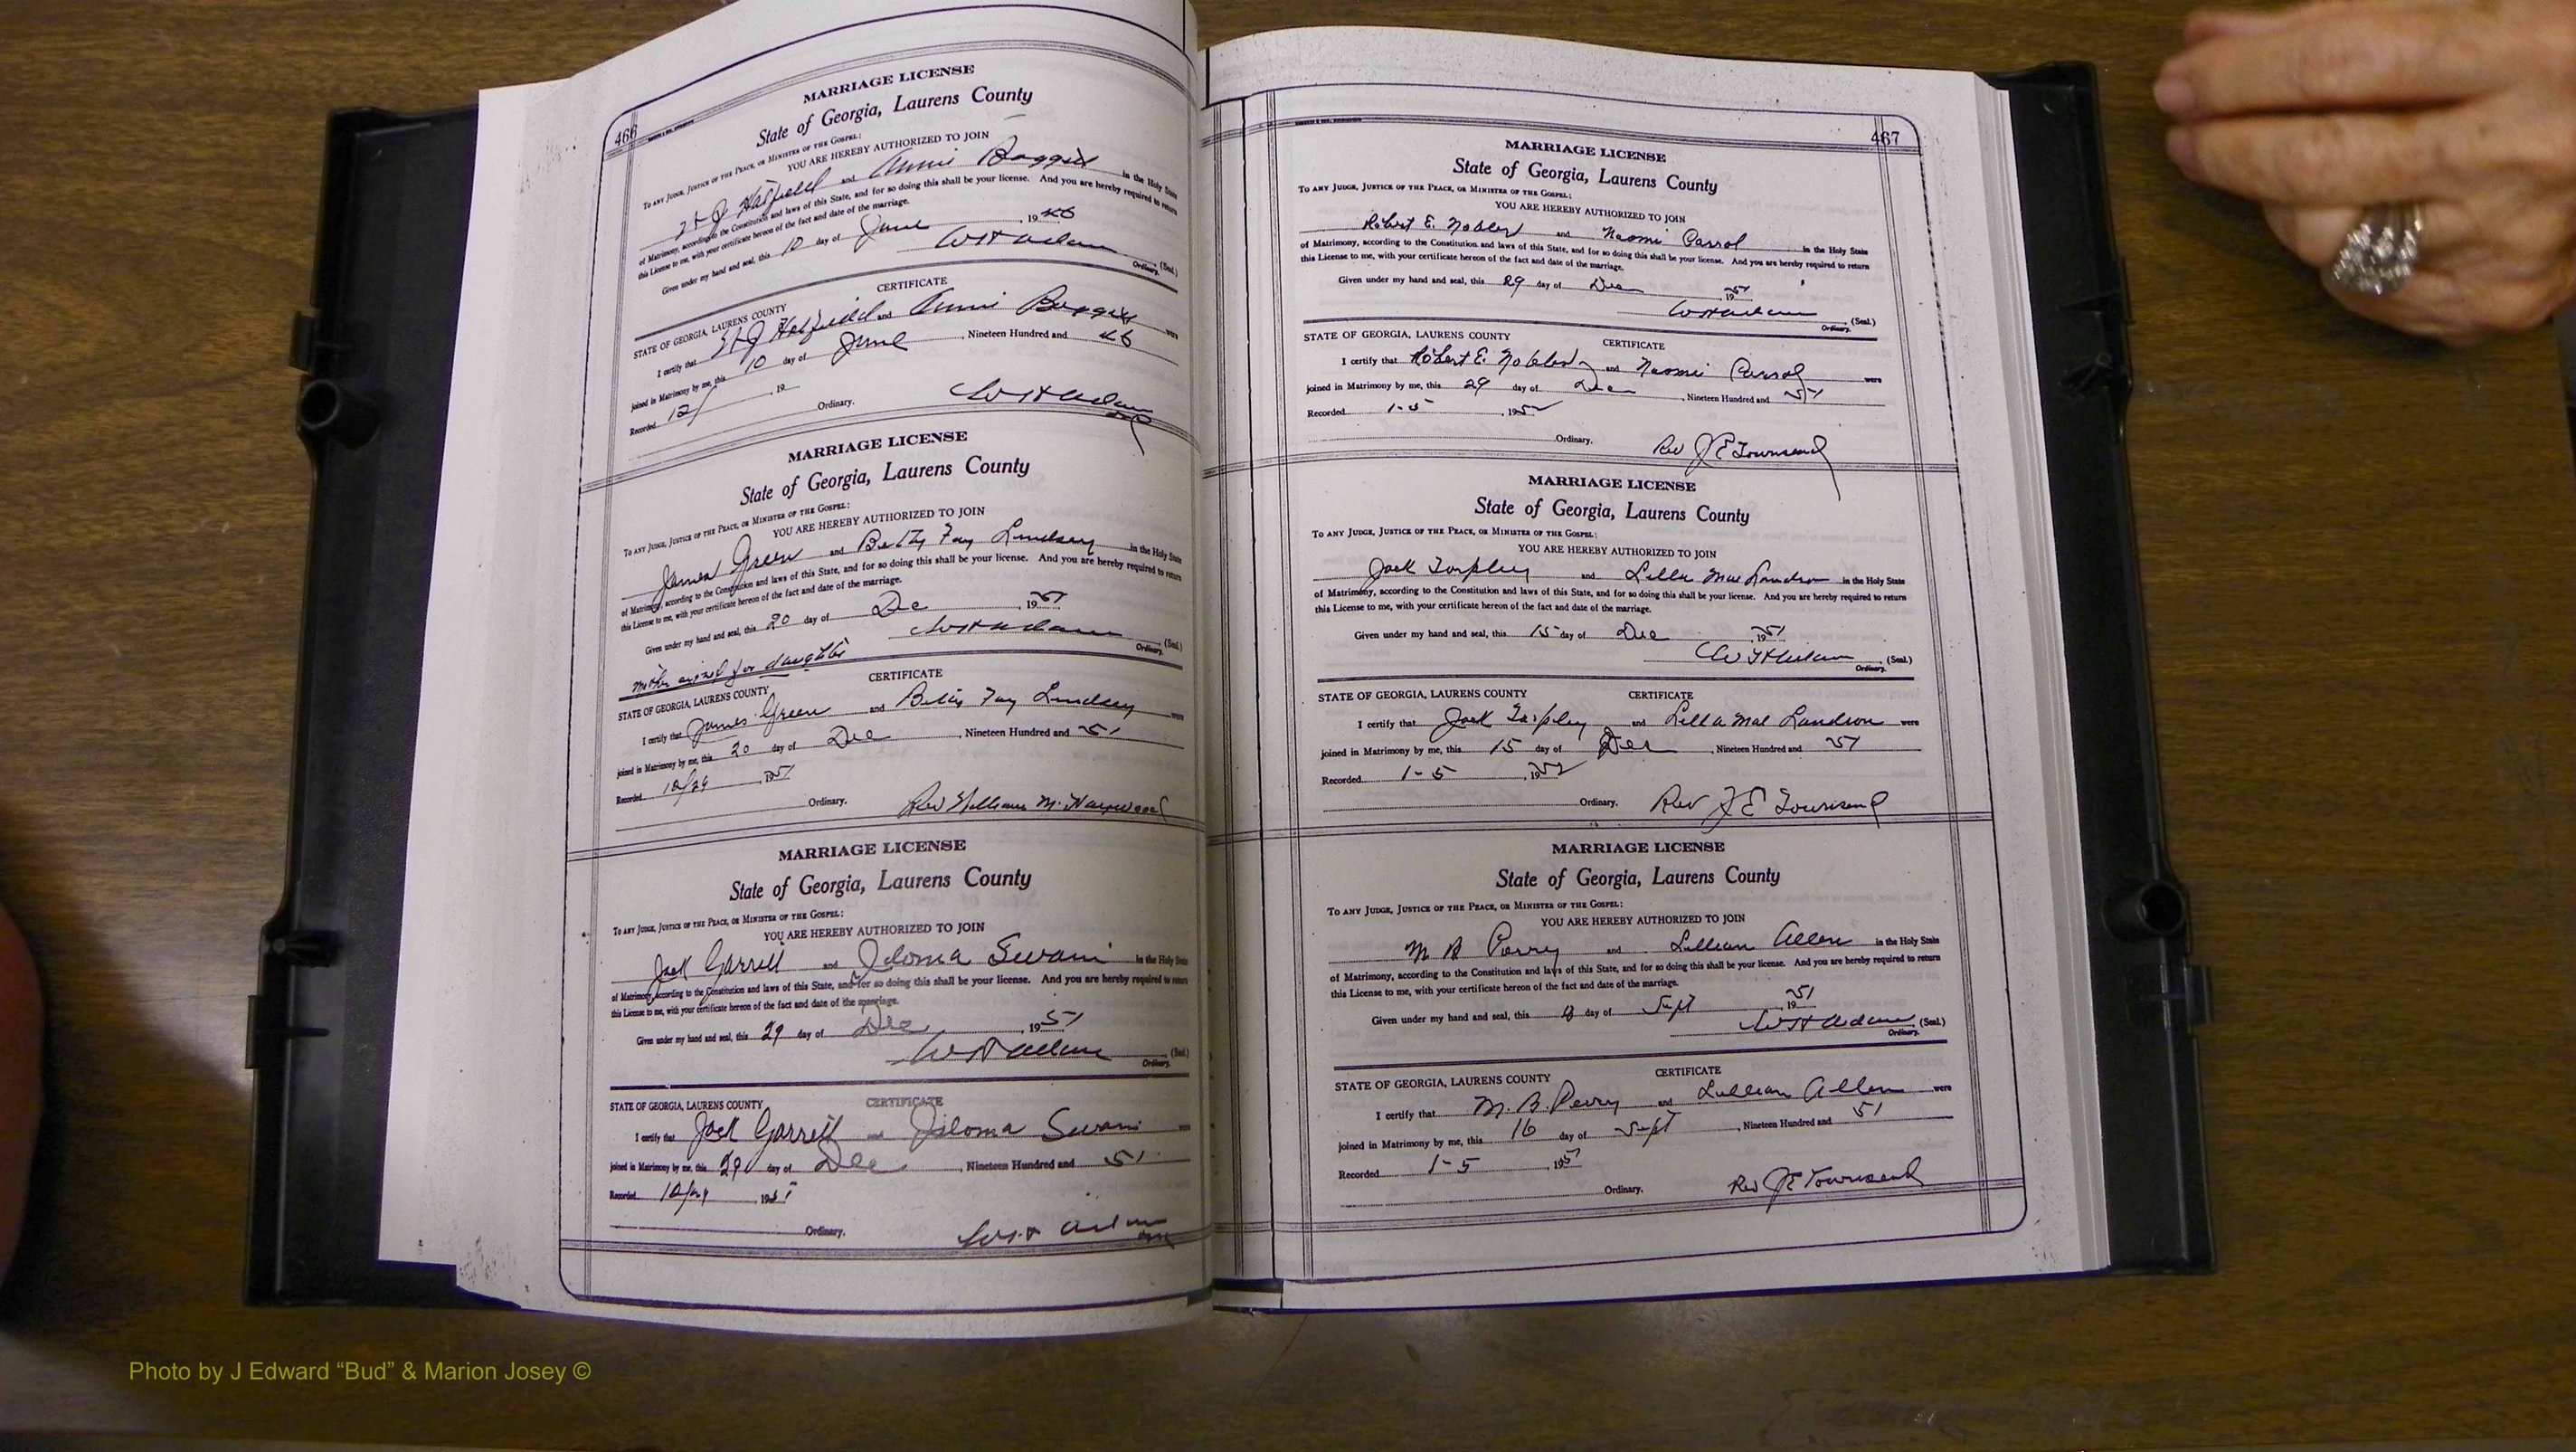 466
MARRIAGE LICENSE
State of Georgia, Laurens County
TO ANY JUDGE, JUSTICE OF THE PEACE, OR MINISTER OF THE GOSPEL:
YOU ARE HEREBY AUTHORIZED TO JOIN
Hatfield and Annie in the Holy State
of Matrimony, according to the Constitution and laws of this State, and for so doing this shall be your license. And you are hereby required to return
this License to me, with your certificate hereon of the fact and date of the marriage.
Given under my hand and seal, this 10 day of June, 1946
(Seal.)
Ordinary.
CERTIFICATE
STATE OF GEORGIA, LAURENS COUNTY
I certify that Hatfield and Annie were
joined in Matrimony by me, this 10 day of June, Nineteen Hundred and 46
Recorded 12/ , 19
Ordinary.
MARRIAGE LICENSE
State of Georgia, Laurens County
TO ANY JUDGE, JUSTICE OF THE PEACE, OR MINISTER OF THE GOSPEL:
YOU ARE HEREBY AUTHORIZED TO JOIN
James Green and Betty Fay Lindsey in the Holy State
of Matrimony, according to the Constitution and laws of this State, and for so doing this shall be your license. And you are hereby required to return
this License to me, with your certificate hereon of the fact and date of the marriage.
Given under my hand and seal, this 20 day of Dec, 1951
(Seal.)
Ordinary.
Mother signed for daughter
CERTIFICATE
STATE OF GEORGIA, LAURENS COUNTY
I certify that James Green and Betty Fay Lindsey were
joined in Matrimony by me, this 20 day of Dec, Nineteen Hundred and 51
Recorded 12/29, 1951
Ordinary. Rev William M. Haywood
MARRIAGE LICENSE
State of Georgia, Laurens County
TO ANY JUDGE, JUSTICE OF THE PEACE, OR MINISTER OF THE GOSPEL:
YOU ARE HEREBY AUTHORIZED TO JOIN
Jack Garrett and Swain in the Holy State
of Matrimony, according to the Constitution and laws of this State, and for so doing this shall be your license. And you are hereby required to return
this License to me, with your certificate hereon of the fact and date of the marriage.
Given under my hand and seal, this 29 day of Dec, 1951
(Seal.)
Ordinary.
CERTIFICATE
STATE OF GEORGIA, LAURENS COUNTY
I certify that Jack Garrett and Swain were
joined in Matrimony by me, this 29 day of Dec, Nineteen Hundred and 51
Recorded 12/29, 1951
Ordinary.
467
MARRIAGE LICENSE
State of Georgia, Laurens County
TO ANY JUDGE, JUSTICE OF THE PEACE, OR MINISTER OF THE GOSPEL:
YOU ARE HEREBY AUTHORIZED TO JOIN
Robert E. Nobles and Naomi Carrol in the Holy State
of Matrimony, according to the Constitution and laws of this State, and for so doing this shall be your license. And you are hereby required to return
this License to me, with your certificate hereon of the fact and date of the marriage.
Given under my hand and seal, this 29 day of Dec, 1951
(Seal.)
Ordinary.
STATE OF GEORGIA, LAURENS COUNTY CERTIFICATE
I certify that Robert E. Nobles and Naomi Carrol were
joined in Matrimony by me, this 29 day of Dec, Nineteen Hundred and 51
Recorded 1-5, 1952
Ordinary. Rev J E Townsend
MARRIAGE LICENSE
State of Georgia, Laurens County
TO ANY JUDGE, JUSTICE OF THE PEACE, OR MINISTER OF THE GOSPEL:
YOU ARE HEREBY AUTHORIZED TO JOIN
Jack Tarpley and Lella Mae in the Holy State
of Matrimony, according to the Constitution and laws of this State, and for so doing this shall be your license. And you are hereby required to return
this License to me, with your certificate hereon of the fact and date of the marriage.
Given under my hand and seal, this 15 day of Dec, 1951
(Seal.)
Ordinary.
STATE OF GEORGIA, LAURENS COUNTY CERTIFICATE
I certify that Jack Tarpley and Lella Mae were
joined in Matrimony by me, this 15 day of Dec, Nineteen Hundred and 51
Recorded 1-5, 1952
Ordinary. Rev J E Townsend
MARRIAGE LICENSE
State of Georgia, Laurens County
TO ANY JUDGE, JUSTICE OF THE PEACE, OR MINISTER OF THE GOSPEL:
YOU ARE HEREBY AUTHORIZED TO JOIN
M B Perry and Lillian Allen in the Holy State
of Matrimony, according to the Constitution and laws of this State, and for so doing this shall be your license. And you are hereby required to return
this License to me, with your certificate hereon of the fact and date of the marriage.
Given under my hand and seal, this day of Sept, 1951
(Seal.)
Ordinary.
STATE OF GEORGIA, LAURENS COUNTY CERTIFICATE
I certify that M. B Perry and Lillian Allen were
joined in Matrimony by me, this 16 day of Sept, Nineteen Hundred and 51
Recorded 1-5, 195
Ordinary. Rev J E Townsend
Photo by J Edward “Bud” & Marion Josey ©